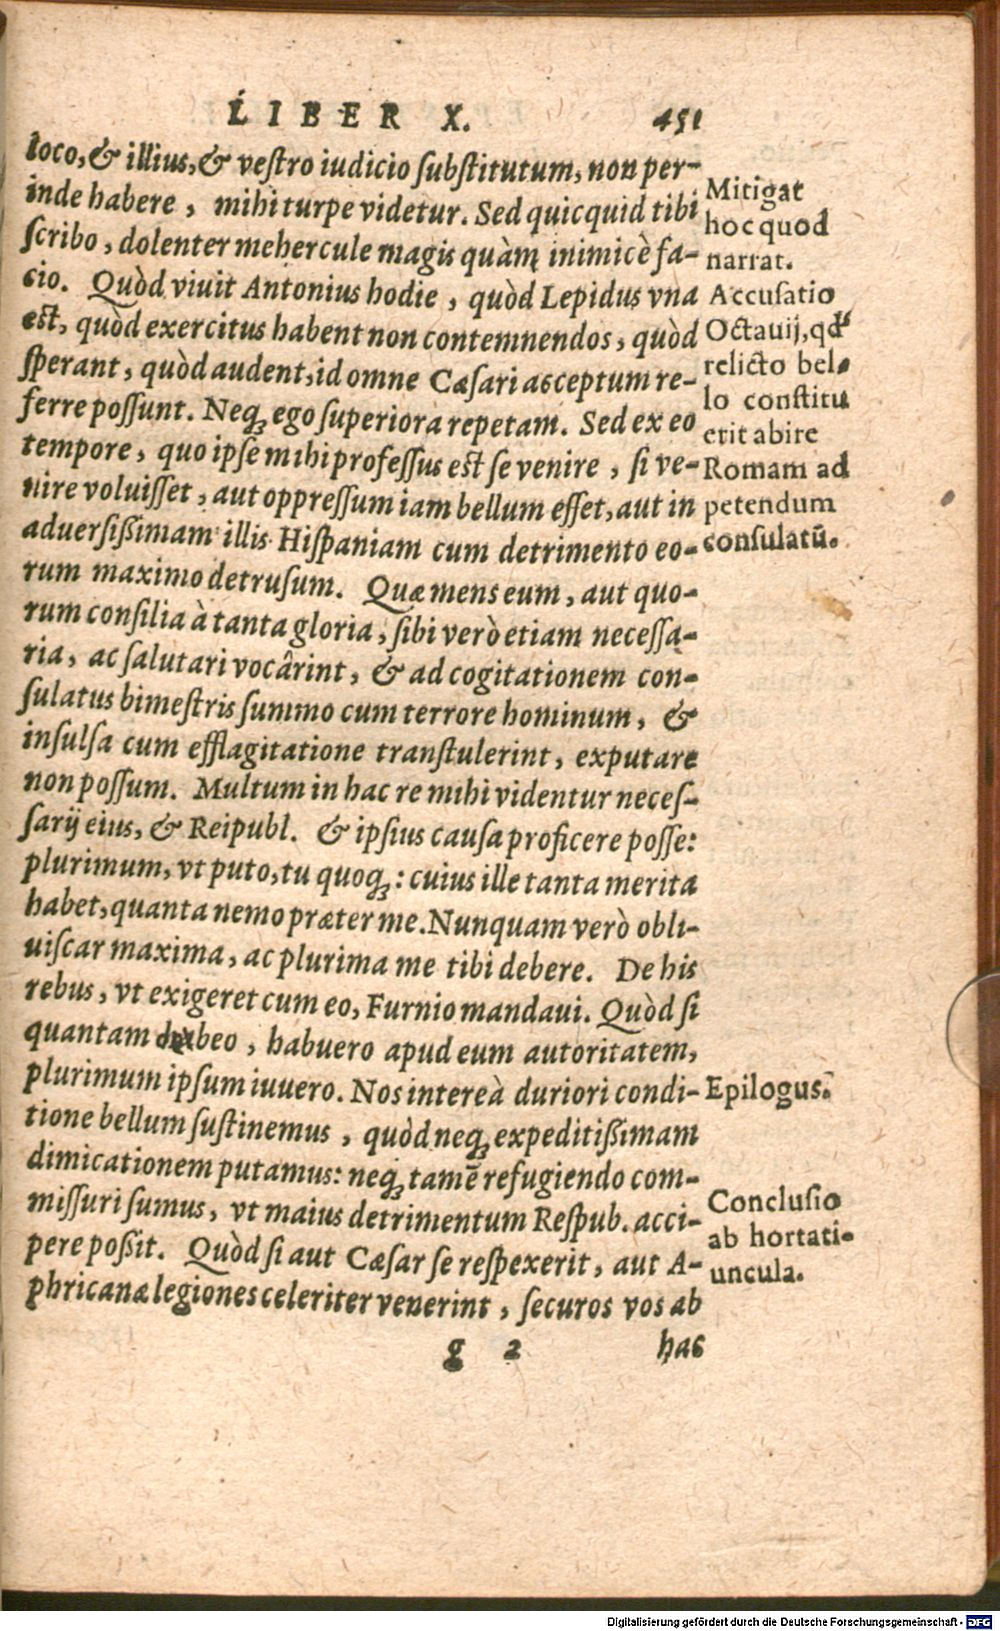 LIBER X. 451
loco, & illius, & veſtro iudicio ſubſtitutum, non per-
inde habere, mihi turpe videtur. Sed quicquid tibi
ſcribo, dolenter mehercule magis quàm inimicè fa-
cio. Quòd viuit Antonius hodie, quòd Lepidus vna
eſt, quòd exercitus habent non contemnendos, quòd
ſperant, quòd audent, id omne Cæſari acceptum re-
ferre poſſunt. Neq; ego ſuperiora repetam. Sed ex eo
tempore, quo ipſe mihi profeſſus eſt ſe venire, ſi ve-
nire voluiſſet, aut oppreſſum iam bellum eſſet, aut in
aduerſißimam illis Hiſpaniam cum detrimento eo-
rum maximo detruſum. Quæ mens eum, aut quo-
rum conſilia à tanta gloria, ſibi verò etiam neceſſa-
ria, ac ſalutari vocârint, & ad cogitationem con-
ſulatus bimeſtris ſummo cum terrore hominum, &
inſulſa cum efflagitatione tranſtulerint, exputare
non poſſum. Multum in hac re mihi videntur neceſ-
ſarij eius, & Reipubl. & ipſius cauſa proficere poſſe:
plurimum, vt puto, tu quoq;: cuius ille tanta merita
habet, quanta nemo præter me. Nunquam verò obli-
uiſcar maxima, ac plurima me tibi debere. De his
rebus, vt exigeret cum eo, Furnio mandaui. Quòd ſi
quantam debeo, habuero apud eum autoritatem,
plurimum ipſum iuuero. Nos intereà duriori condi-
tione bellum ſuſtinemus, quòd neq; expeditißimam
dimicationem putamus: neq; tamē refugiendo com-
miſſuri ſumus, vt maius detrimentum Reſpub. acci-
pere poßit. Quòd ſi aut Cæſar ſe reſpexerit, aut A-
phricanæ legiones celeriter venerint, ſecuros vos ab
g 2 has
Mitigat
hoc quod
narrat.
Accuſatio
Octauij, qd'
relicto bel-
lo conſtitu
erit abire
Romam ad
petendum
conſulatū.
Epilogus.
Concluſio
ab hortati-
uncula.
Digitalisierung gefördert durch die Deutsche Forschungsgemeinschaft - DFG